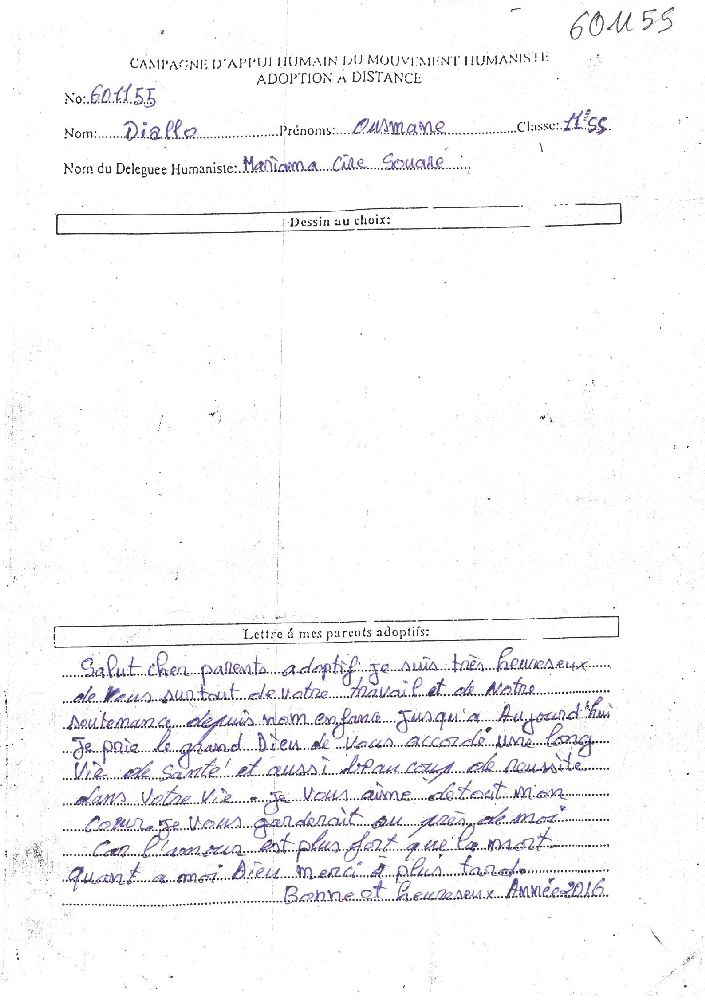 601155
CAMPAGNE D'APPUI HUMAIN DU MOUVEMENT HUMANISTE
ADOPTION A DISTANCE
No: 601155
Nom: Diallo Prénoms: Ousmane Classe: 11e SS
Nom du Deleguee Humaniste: Mariama Cire Souaré
Dessin au choix:
Lettre á mes parents adoptifs:
Salut cher parents adoptif je suis très heureseux
de Vous surtout de votre travail et de Notre
soutenance depuis mom enfance jusqu'a Aujourd'hui
Je prie le grand Dieu de Vous accordé une long
Vie de Santé et aussi beaucoup de reussite
dans Votre Vie. je Vous aime de tout mon
Cœur. je Vous garderait au près de moi
Car l'amour est plus fort que la mort.
quant a moi Dieu merci à plus tard.
Bonne et heureseux Année 2016